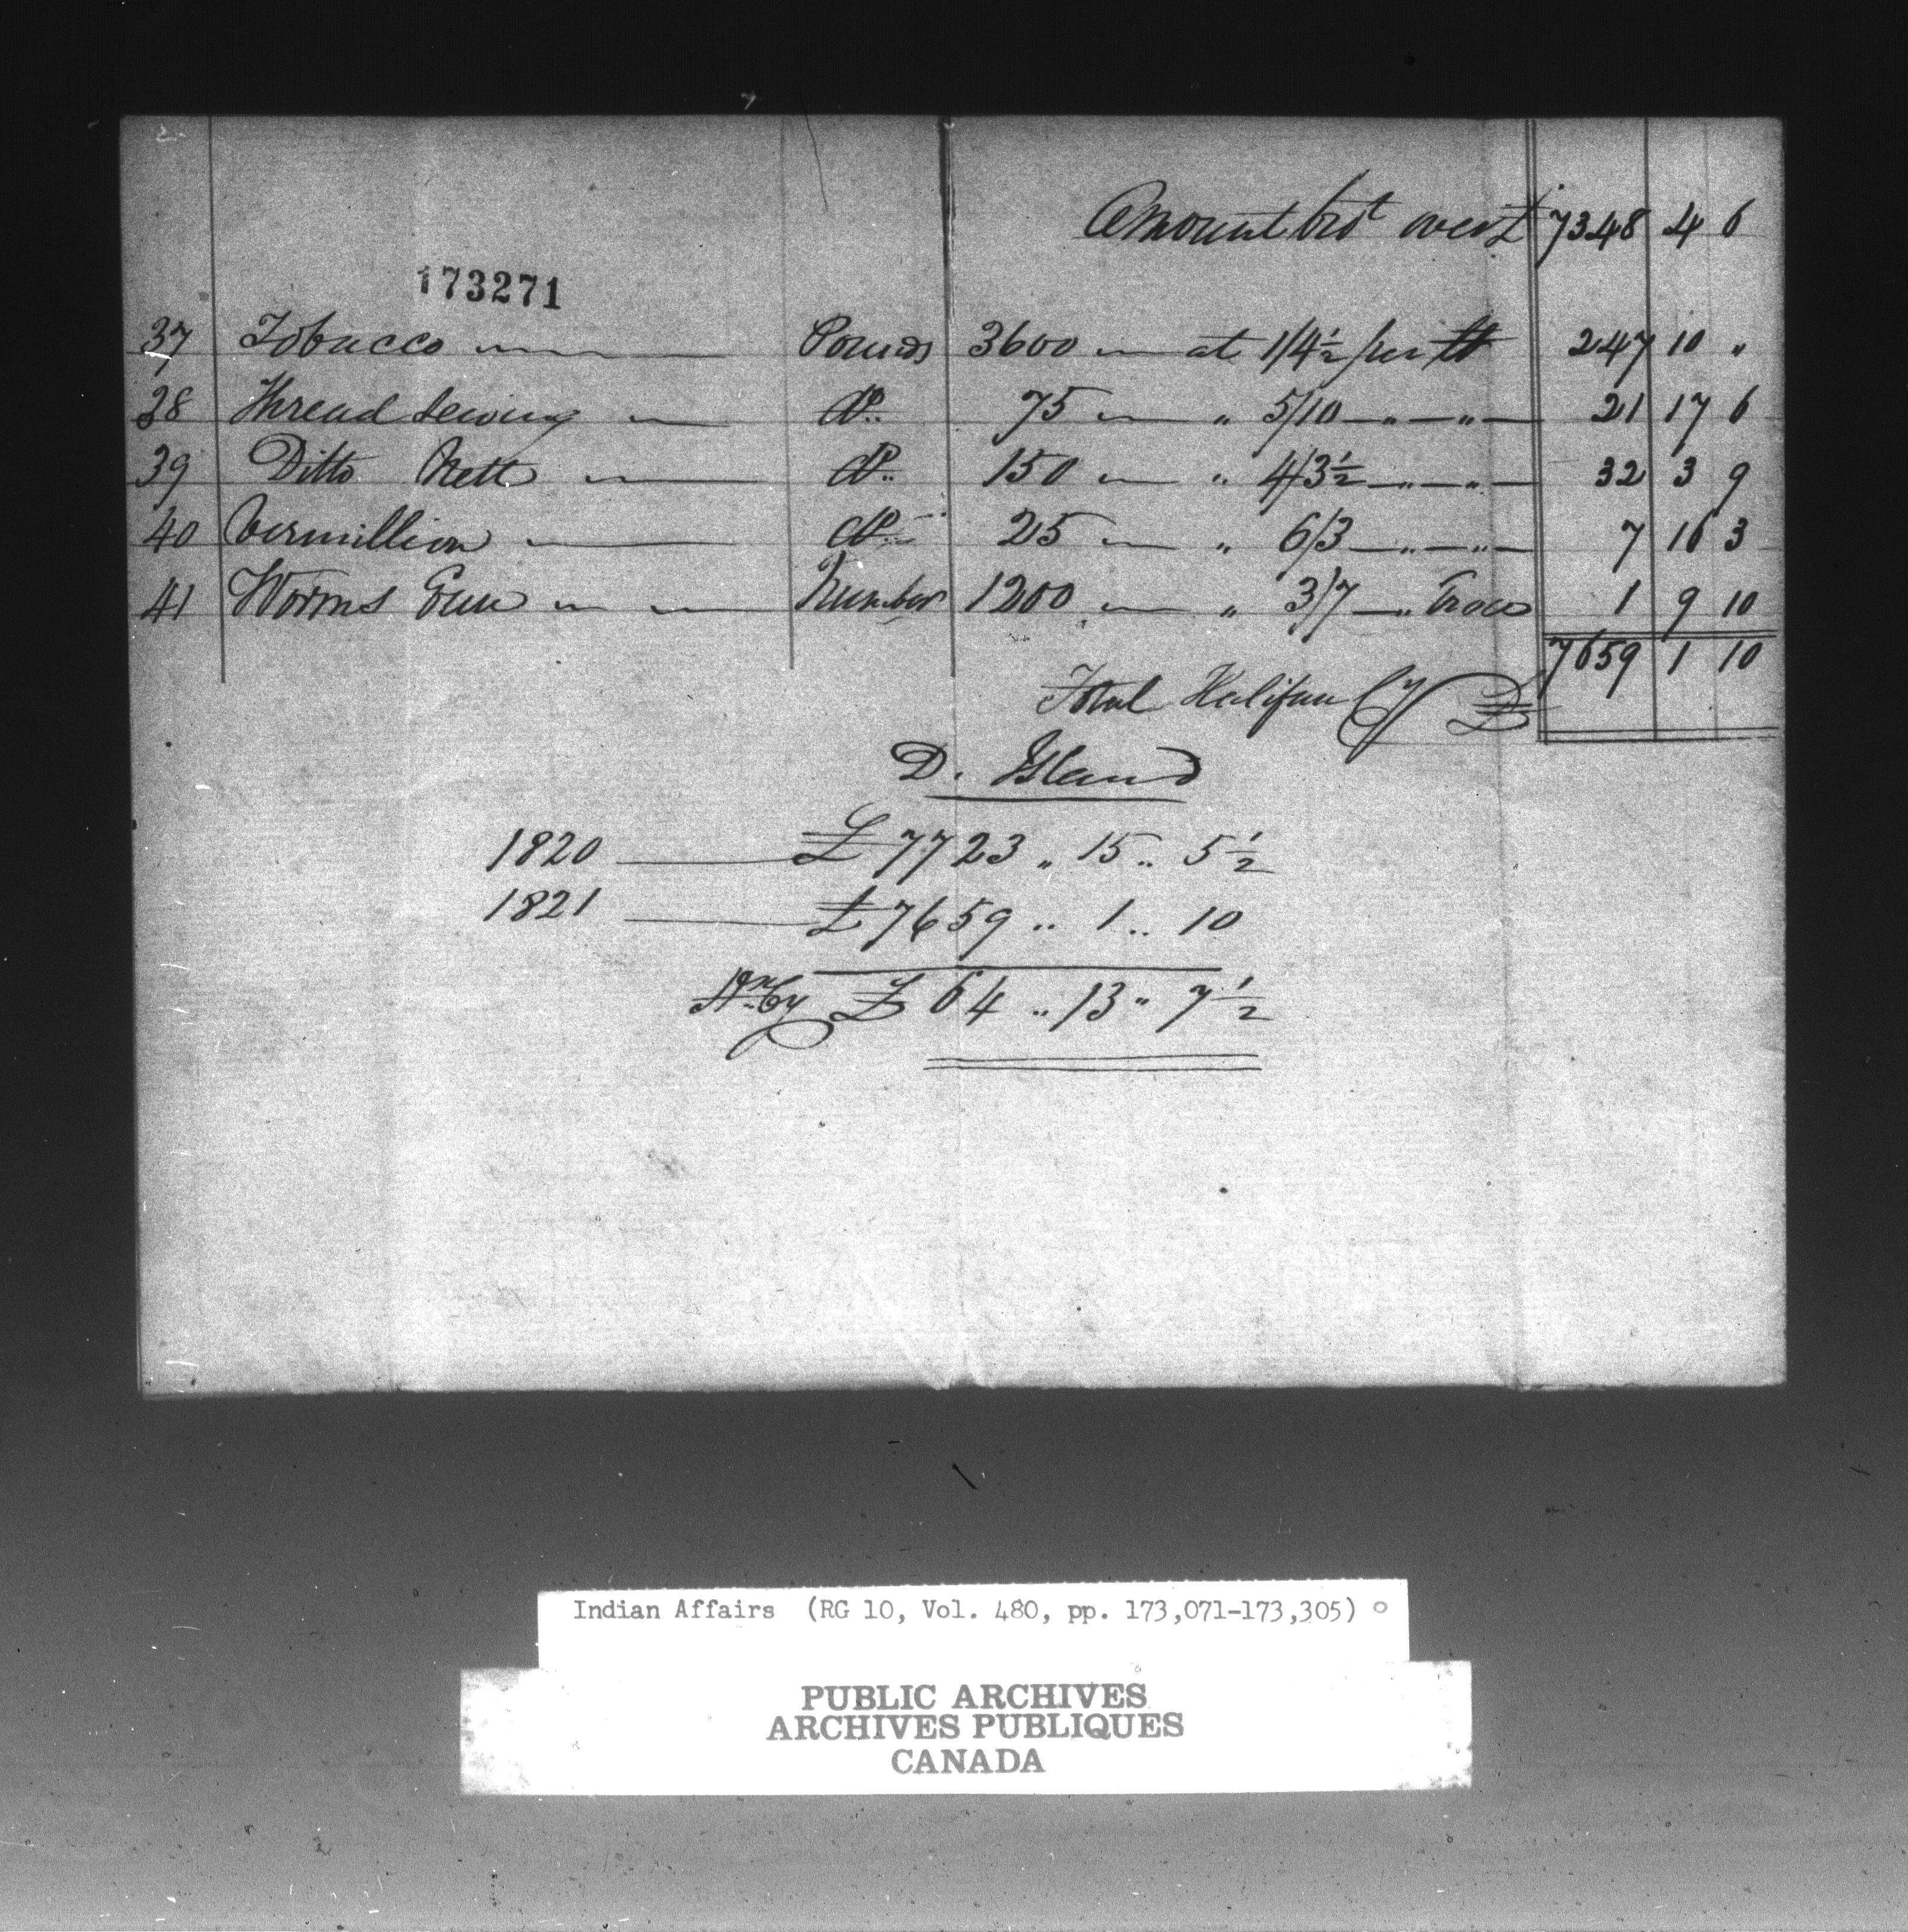 Amount bro.t over £ 7348 4 6
173271
37 Tobacco Pounds 3600 at 1/4½ per lb 247 10 "
38 Thread Sewing Do. 75 " 5/10 " " 21 17 6
39 Ditto Nett Do. 150 " 4/3½ " " 32 3 9
40 Vermillion Do. 25 " 6/3 " " 7 16 3
41 Worms Gun Number 1200 " 3/7 " Groce 1 9 10
7659 1 10
Total Halifax Cy £
D. Island
1820 £ 7723 " 15 " 5½
1821 £ 7659 " 1 " 10
Cy £ 64 " 13 " 7½
Indian Affairs (RG 10, Vol. 480, pp. 173,071-173,305)
PUBLIC ARCHIVES
ARCHIVES PUBLIQUES
CANADA